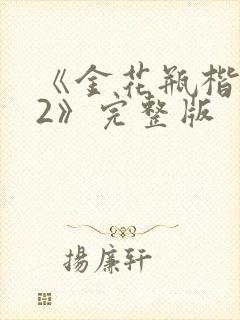 《金花瓶楷
2》完整版
揚廉轩